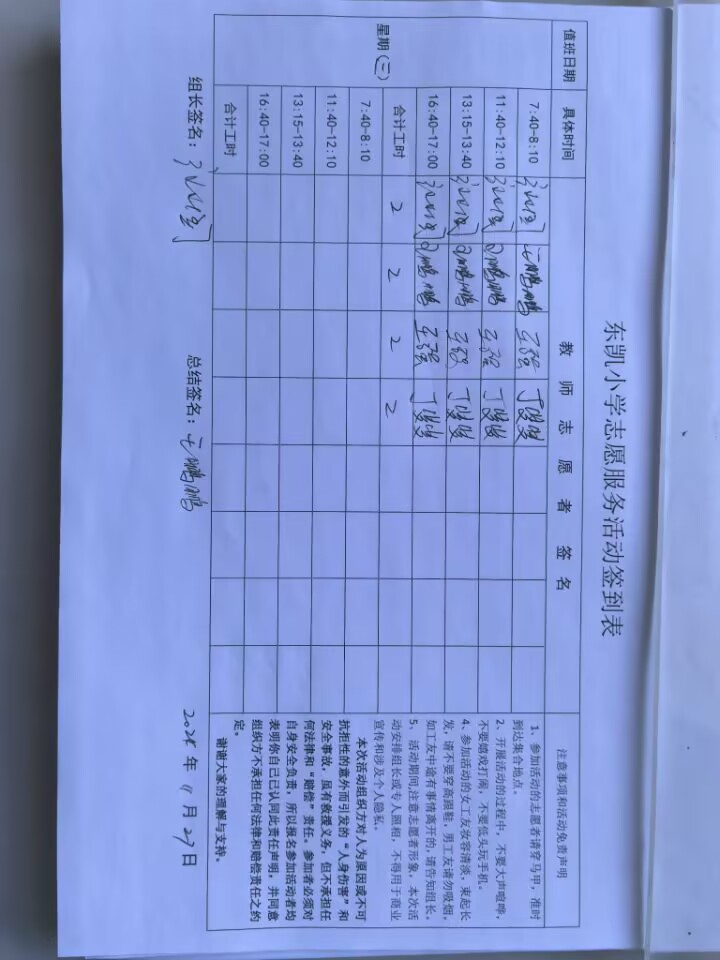 东凯小学志愿服务活动签到表
值班日期 具体时间 教师志愿者签名 注意事项和活动免责声明
星期（三）
7:40-8:10 王强
11:40-12:10 王强
13:15-13:40 王强
16:40-17:00 王强
合计工时 2 2 2 2
7:40-8:10
11:40-12:10
13:15-13:40
16:40-17:00
合计工时
1、参加活动的志愿者请穿马甲，准时
到达集合地点。
2、开展活动的过程中，不要大声喧哗，
不要嬉戏打闹，不要低头玩手机。
4、参加活动的女工友妆容清淡，束起长
发，请不要穿高跟鞋，男工友请勿吸烟，
如工友中途有事情离开的，请告知组长。
5、活动期间,注意志愿者形象，本次活
动安排组长或专人照相，不得用于商业
宣传和涉及个人隐私。
本次活动组织方对人为原因或不可
抗拒性的意外而引发的“人身伤害”和
安全事故，虽有救援义务，但不承担任
何法律和“赔偿”责任。参加者必须对
自身安全负责，所以报名参加活动者均
表明你自己已认同此责任声明，并同意
组织方不承担任何法律和赔偿责任之约
定。
谢谢大家的理解与支持。
组长签名： 总结签名： 年 11 月 27 日